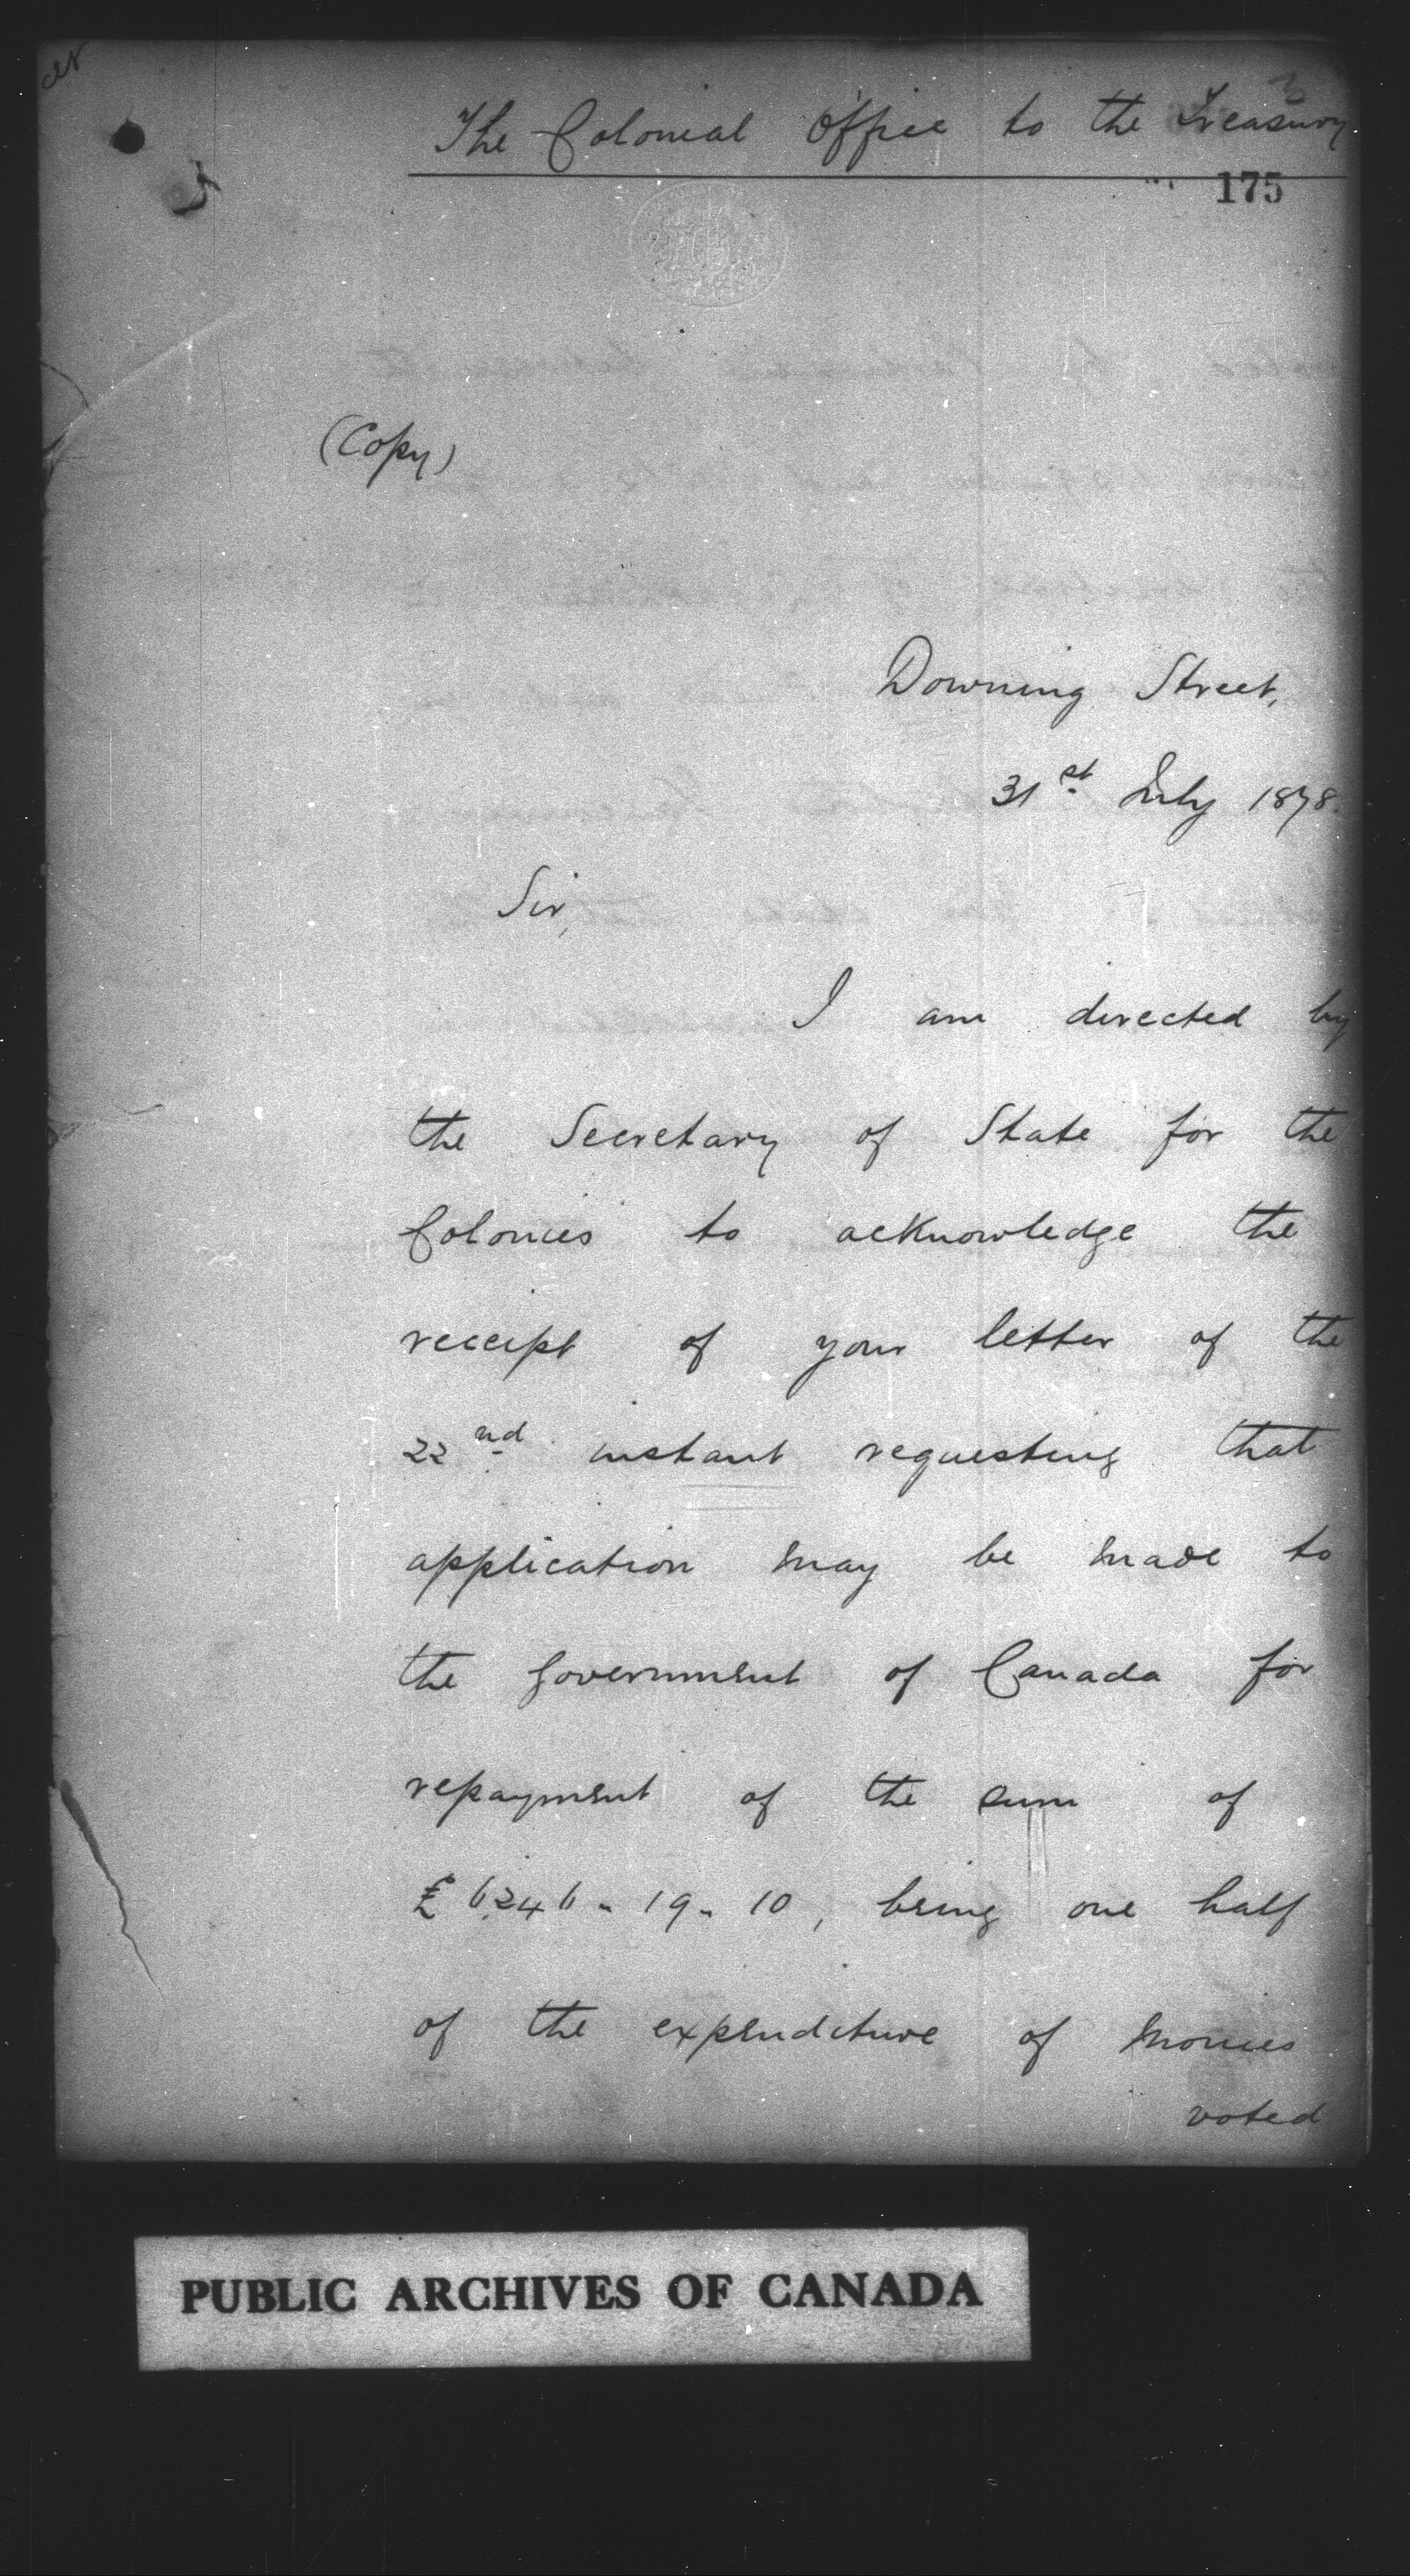 The Colonial Office to the Treasury
175
(Copy)
Downing Street,
31st July 1878.
Sir,
I am directed by
the Secretary of State for the
Colonies to acknowledge the
receipt of your letter of the
22nd instant requesting that
application may be made to
the Government of Canada for
repayment of the sum of
£6,246-19-10, being one half
of the expenditure of monies
voted
PUBLIC ARCHIVES OF CANADA